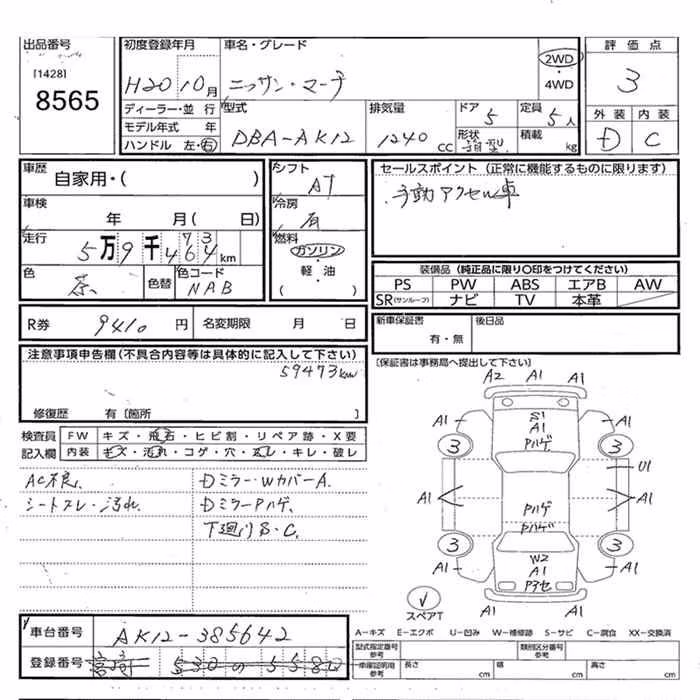 出品番号
[1428]
8565
初度登録年月
H20 10月
車名・グレード
ニッサン・マーチ
2WD
・
4WD
評価点
3
外装 内装
D C
ディーラー・並行
モデル年式 年
ハンドル 左・右
型式
DBA-AK12
排気量
1240
cc
ドア
5
定員
5人
形状
積載
kg
車歴
自家用・( )
車検
年 月( 日)
走行
5万9千464km
73
色
茶
色替
色コード
NAB
シフト
AT
冷房
有
燃料
ガソリン
・
軽・油
( )
セールスポイント (正常に機能するものに限ります)
手動アクセル車
装備品 (純正品に限り〇印をつけてください)
PS PW ABS エアB AW
SR(サンルーフ) ナビ TV 本革
R券 9410 円
名変期限 月 日
新車保証書
有・無
後日品
注意事項申告欄(不具合内容等は具体的に記入して下さい)
59473km
修復歴 有〔箇所 〕
〔保証書は事務局へ提出して下さい〕
検査員
記入欄
FW キズ・飛石・ヒビ割・リペア跡・X要
内装 キズ・汚れ・コゲ・穴・スレ・キレ・破レ
AC不良、
シートスレ・汚れ
DミラーWカバーA.
DミラーPハゲ.
下廻りS・C.
A2 A1 A1
A1 S1 A1
A1
Pハゲ
3 3
U1
A1 A1
Pハゲ
Pハゲ
3 3
W2
A1 A1 A1
Pアセ
スペアT
A1 A1 A1
車台番号 AK12-385642
登録番号 530 の 5580
A-キズ E-エクボ U-凹み W-補修跡 S-サビ C-腐食 XX-交換済
型式指定番号
参考
類別区分番号
参考
車庫証明用
参考
長さ cm 幅 cm 高さ cm